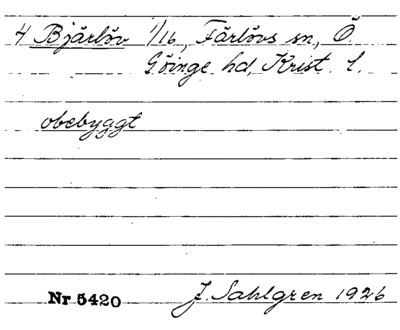 4 Bjärlöv 1/16, Färlövs sn, Ö.
Göinge hd, Krist. l.
obebyggt
Nr 5420 J. Sahlgren 1926